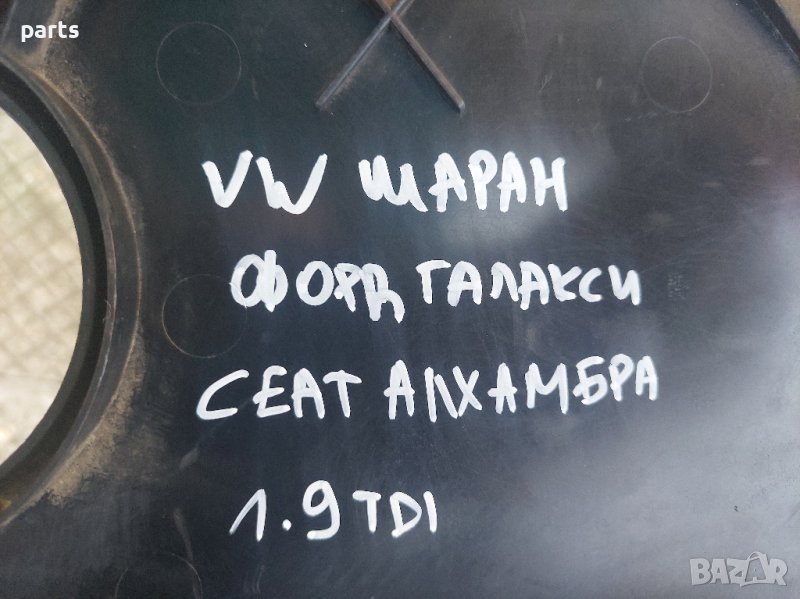 parts
VW ШАРАН
ФОРД ГАЛАКСИ
СЕАТ АЛХАМБРА
1.9 TDI
BAZAR